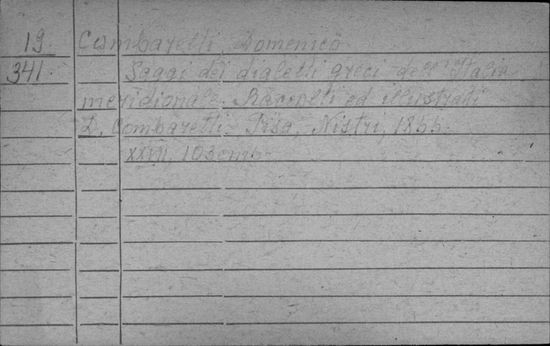 19 Combaretti, Domenico
341. Saggi dei dialetti greci dell'Italia
meridionale. Raccolti ed illustrati
D. Combaretti. Pisa, Nistri, 1866.
XXVIII, 103